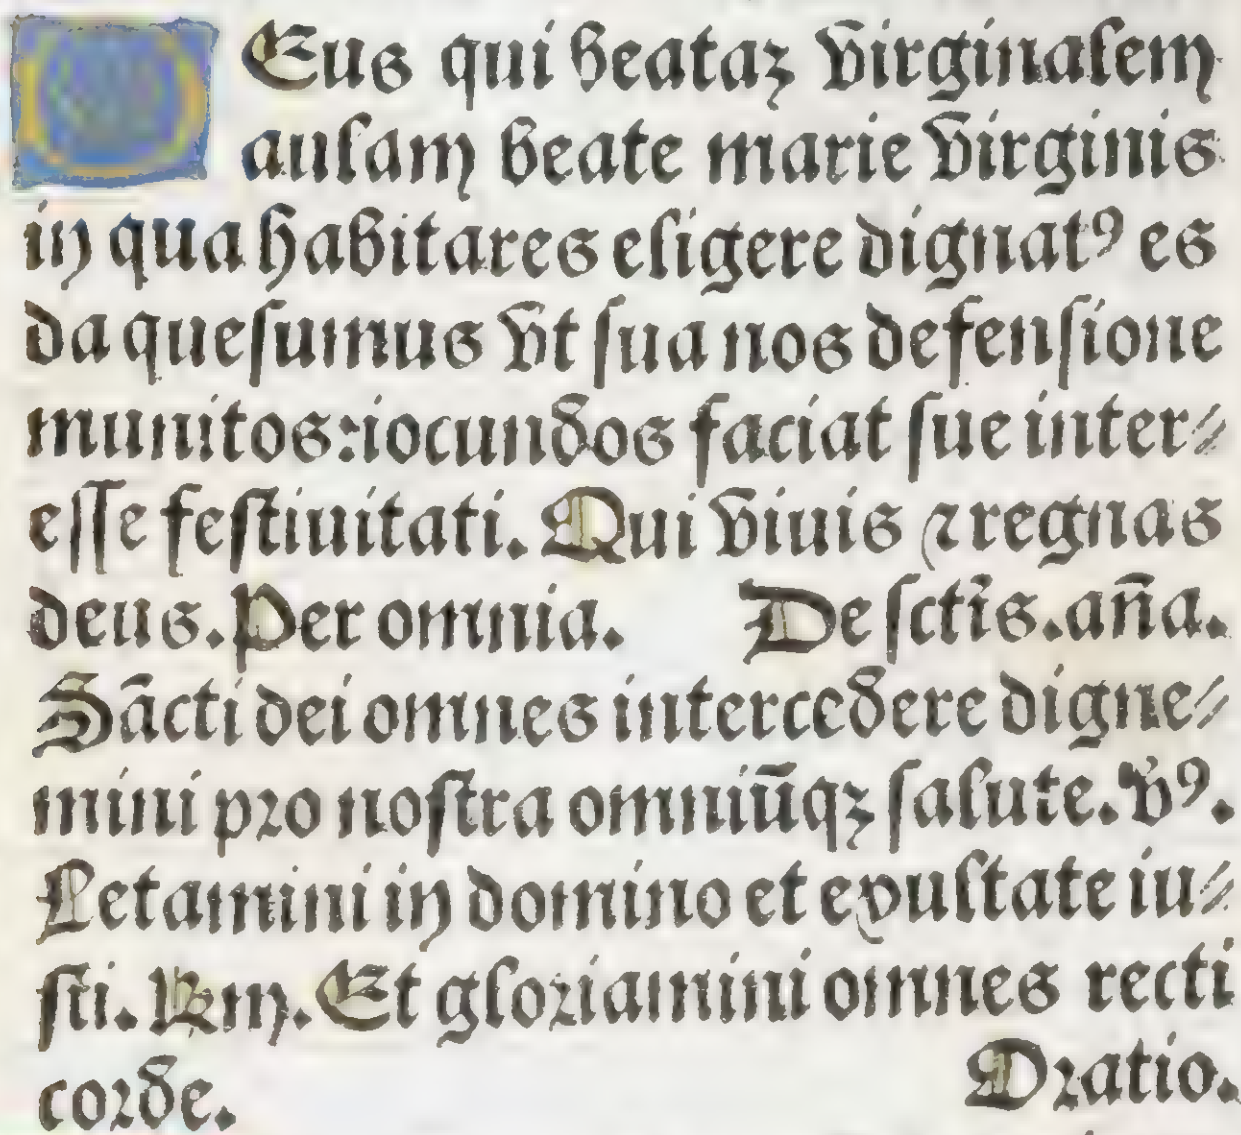 DEus qui beataꝫ virginalem
aulam beate marie virginis
in qua habitares eligere dignatꝰ es
da queſumus vt ſua nos defenſione
munitos: iocundos faciat ſue inter⸗
eſſe feſtiuitati. Qui viuis ⁊ regnas
deus. Per omnia. De ſctīs. an̄a.
Sācti dei omnes intercedere digne⸗
mini pꝛo noſtra omniūqꝫ ſalute. vꝰ.
Letamini in domino et exultate iu⸗
ſti. Rm. Et gloꝛiamini omnes recti
coꝛde. Oꝛatio.